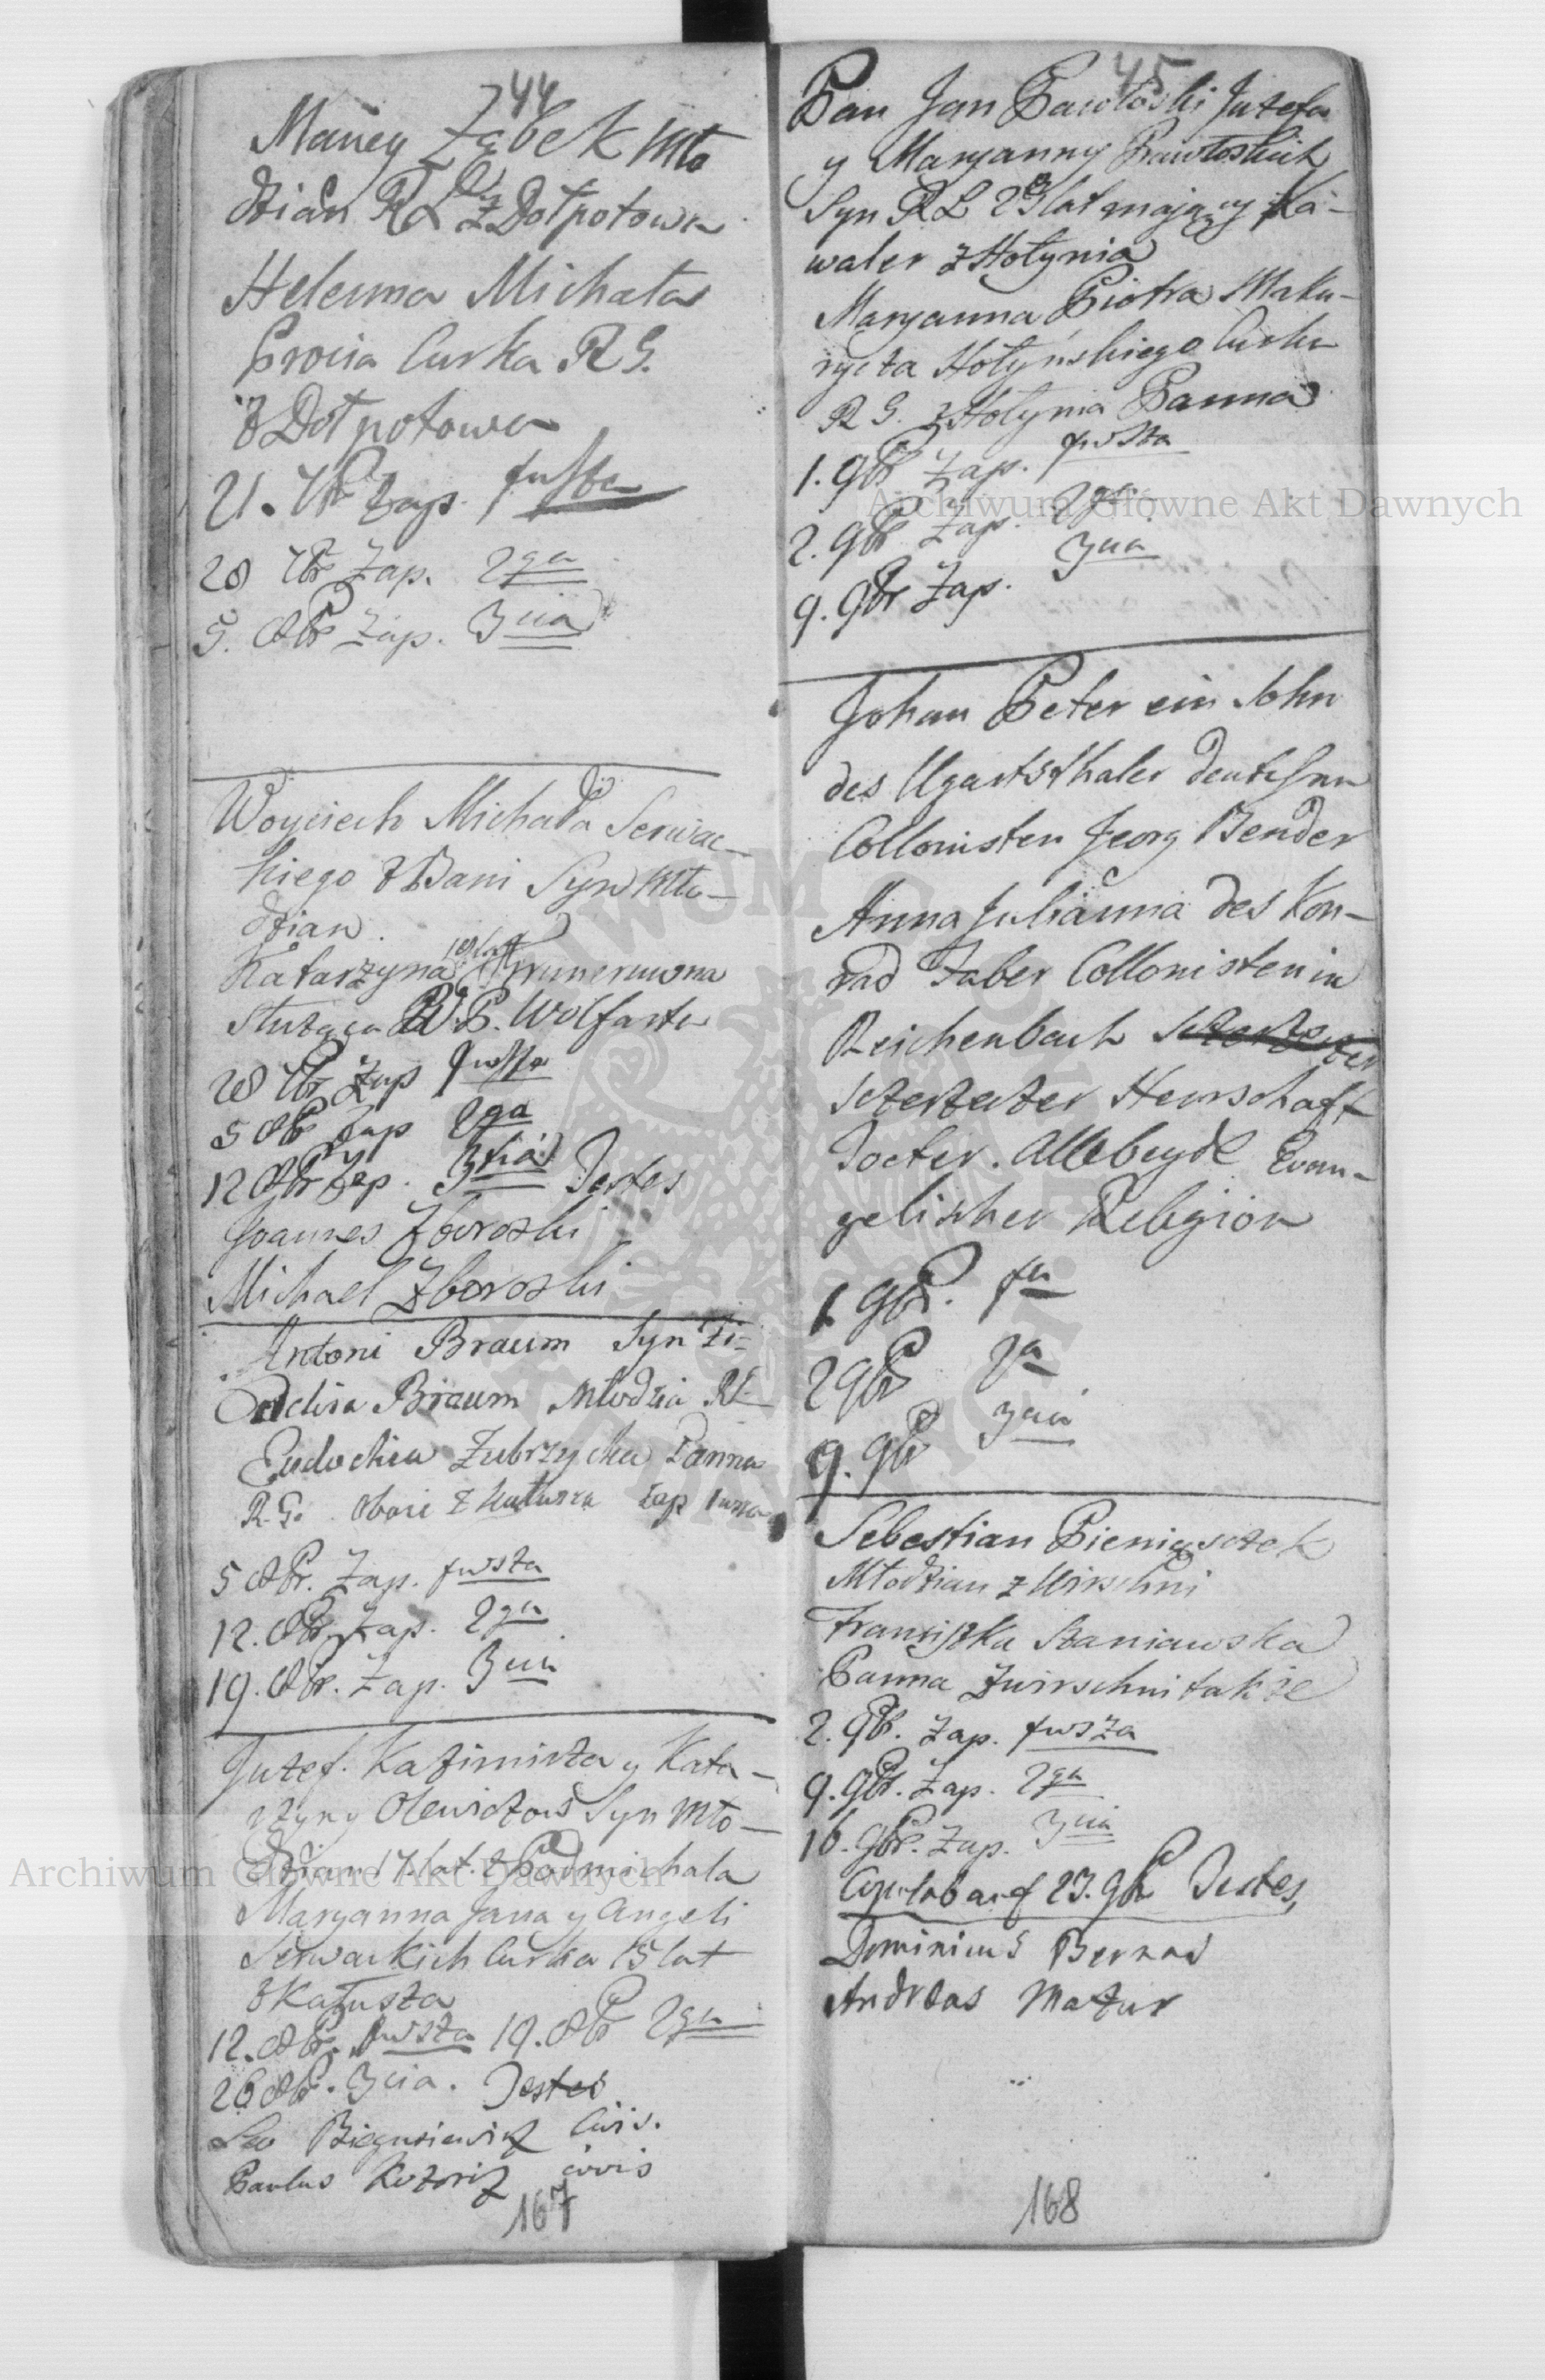 44
Maciey Ząbek Mło
dzian RŁ z Dołpotowa
Helenna Michała
Procia Curka R G.
z Dołpotowa
21. 7br Zap. 1wsza
28 7br Zap. 2ga
5. 8br Zap. 3cia
Woyciech Michała Serwac-
kiego z Bani Syn Mło-
dzian.
Katarzyna
Służąca P. Wolfarta
28 7br Zap 1wsza
5 8br Zap 2ga
12 8br Zap. 3cia Testes
Joannes Zboroski
Michael Zboroski
Antoni Braum Syn
Braum Młodzia RŁ
Eudochia Zubrzycka Panna
R. G. oboie z Kałusza Zap 1wsza
5 8br. Zap. 1wsza
12. 8br. Zap. 2ga
19. 8br. Zap. 3cia
Juzef. Kazimirza y Kata-
rzyny Olewiczow Syn Mło-
dzian 17. lat. z Podmichala
Maryanna Jana y Angeli
Serwackich Curka 15 lat
z Kałusza
12. 8br. 1wsza 19. 8br 2ga
26 8br. 3cia. Testes
Leo Biegusiewicz Civis.
Paulus Kozoriz civis
167
45
Pan Jan Pawłoski Juzefa
y Maryanny Pawłoskich
Syn RŁ 23 lat mający Ka-
waler z Hołynia
Maryanna Piotra Maku-
rycza Hołyńskiego Curka
R G. z Hołynia Panna
1. 9br Zap. 1wsza
2. 9br Zap. 2ga
9. 9br Zap. 3cia
Johan Peter ein Sohn
des Ugartsthaler Deutschen
Collonisten Georg Bender
Anna Julianna des Kon-
rad Faber Collonisten in
Reichenbach
Herrschaft
Tocter. Allebeyde Evan-
gelischer Religion
1. 9br. 1a
2 9br 2a
9. 9br 3cia
Sebestian Pieniąszek
Młodzian z Wirschni
Franciszka Staniawska
Panna z Wirschni także
2. 9br. Zap. 1wsza
9. 9br. Zap. 2ga
16. 9br. Zap. 3cia
Copulab auf 23. 9br Testes,
Dominicus Bernad
Andreas Mazur
168
Archiwum Główne Akt Dawnych
Archiwum Główne Akt Dawnych